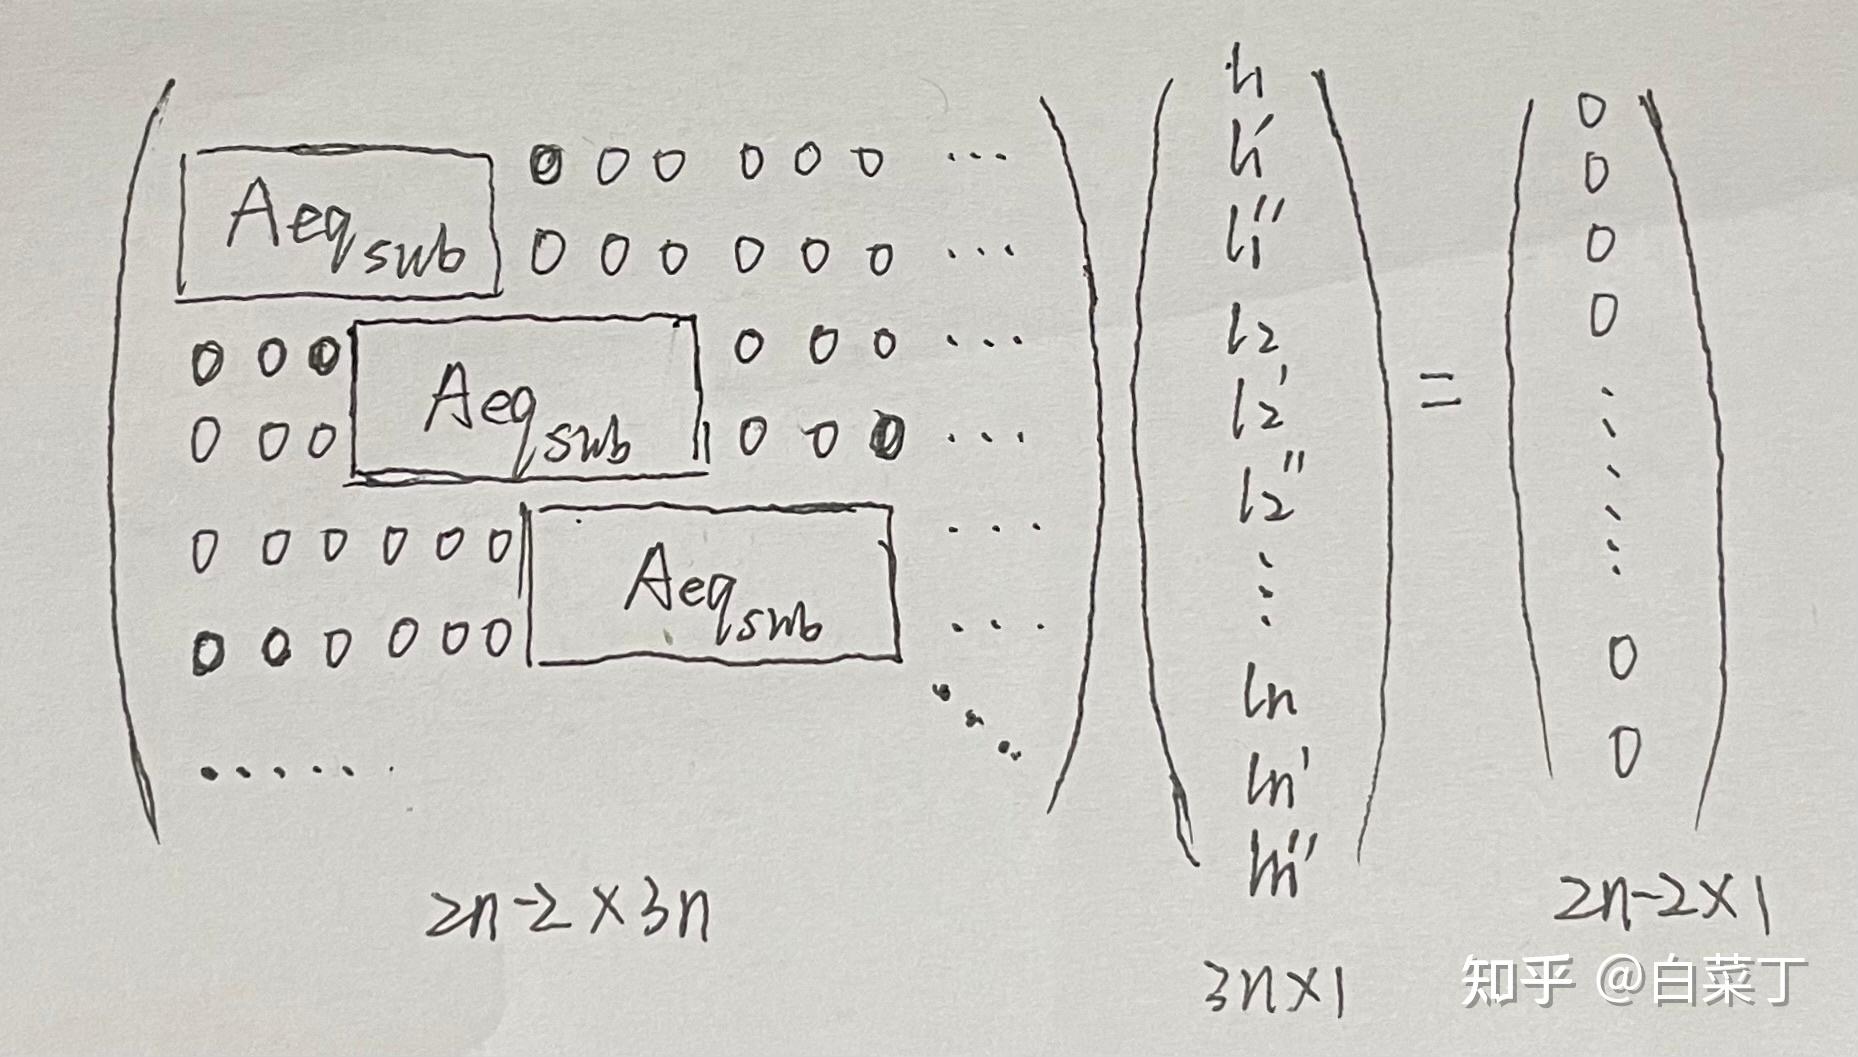 Aeq_sub 0 0 0 0 0 0 ...
0 0 0 0 0 0 ...
0 0 0 Aeq_sub 0 0 0 ...
0 0 0 0 0 0 ...
0 0 0 0 0 0 Aeq_sub ...
0 0 0 0 0 0 ...
......
2n-2×3n
l1
l1'
l1''
l2
l2'
l2''
⋮
ln
ln'
ln''
3n×1
=
0
0
0
0
⋮
0
0
2n-2×1
知乎 @白菜丁